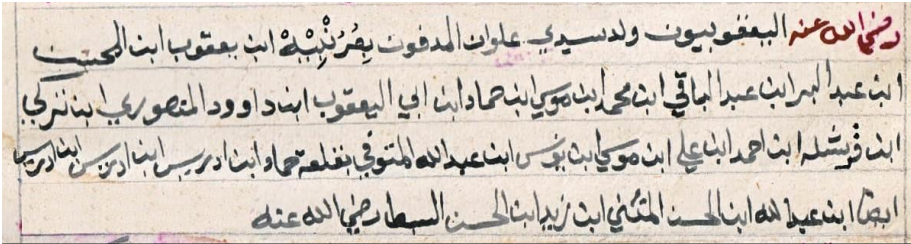 رضي الله عنه اليعقوبيون ولد سيدي علوان المدفون بِصُرُنْبِيْبَهْ ابن يعقوب ابن المحسن
ابن عبد البر ابن عبد الباقي ابن محمد ابن موسى ابن حماد ابن ابي اليعقوب ابن داوود المنصوري ابن تركي
ابن قريشله ابن احمد ابن علي ابن موسى ابن يونس ابن عبد الله المتوفي بقلعة حماد ابن ادريس ابن ادريس ابن ادريس
ايضا ابن عبد الله ابن الحسن المثني ابن زيد ابن الحسن السبط رضي الله عنه